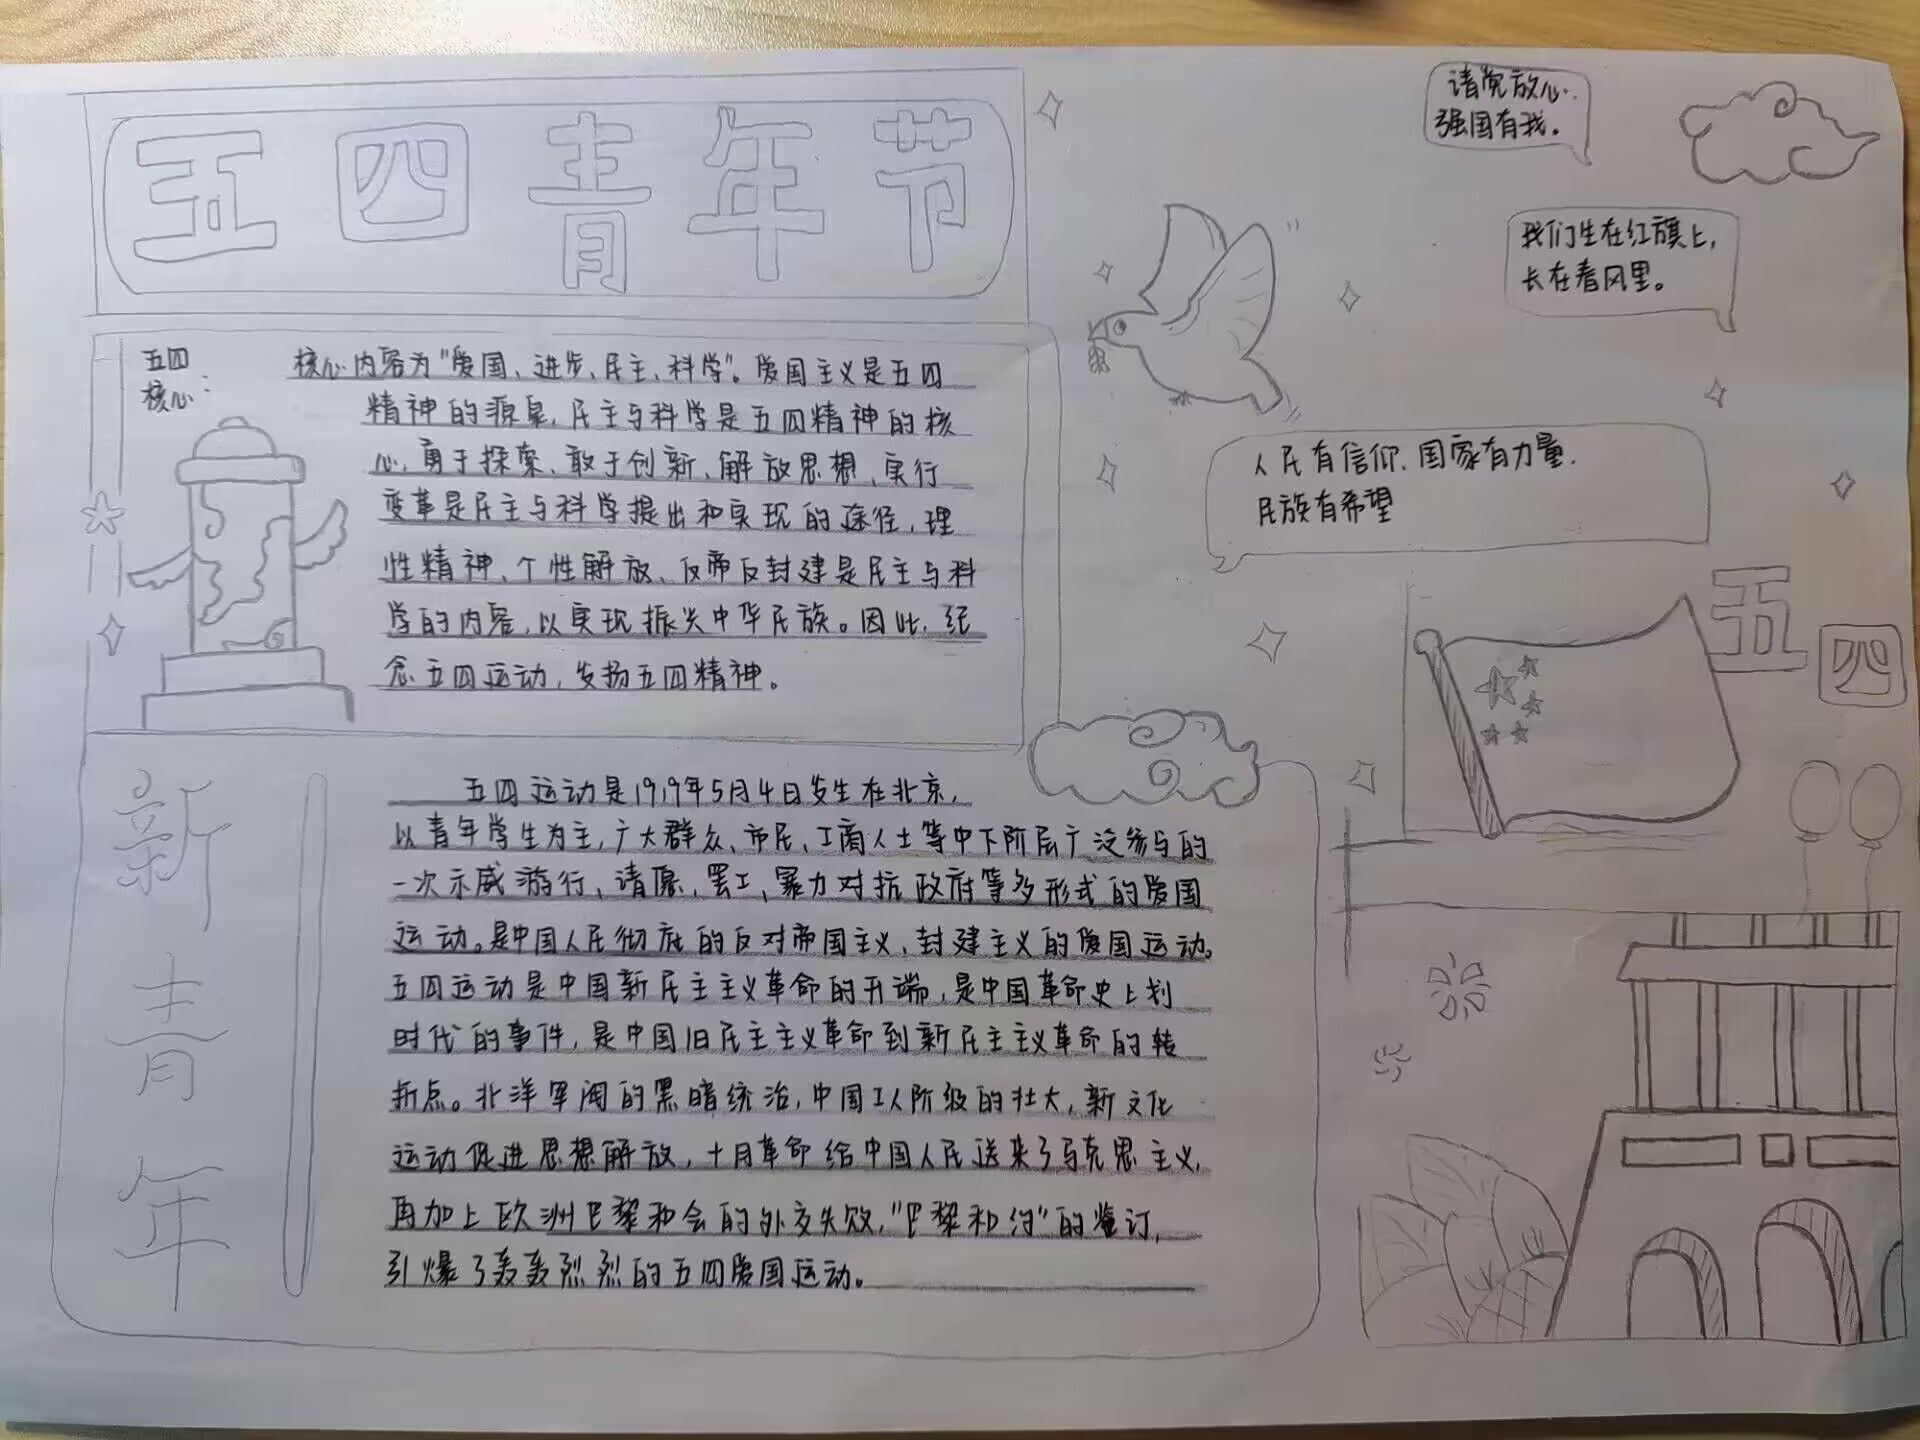 五四青年节
请党放心.
强国有我。
我们生在红旗上,
长在春风里。
五四
核心:
核心内容为"爱国、进步、民主、科学"。爱国主义是五四
精神的源泉,民主与科学是五四精神的核
心,勇于探索、敢于创新、解放思想、实行
变革是民主与科学提出和实现的途径,理
性精神、个性解放、反帝反封建是民主与科
学的内容,以实现振兴中华民族。因此,纪
念五四运动,发扬五四精神。
人民有信仰、国家有力量.
民族有希望
五四
新青年
五四运动是1919年5月4日发生在北京,
以青年学生为主,广大群众、市民、工商人士等中下阶层广泛参与的
一次示威游行、请愿、罢工、暴力对抗政府等多形式的爱国
运动。是中国人民彻底的反对帝国主义,封建主义的爱国运动。
五四运动是中国新民主主义革命的开端,是中国革命史上划
时代的事件,是中国旧民主主义革命到新民主主义革命的转
折点。北洋军阀的黑暗统治,中国工人阶级的壮大,新文化
运动促进思想解放,十月革命给中国人民送来了马克思主义,
再加上欧洲巴黎和会的外交失败,"巴黎和约"的签订,
引爆了轰轰烈烈的五四爱国运动。